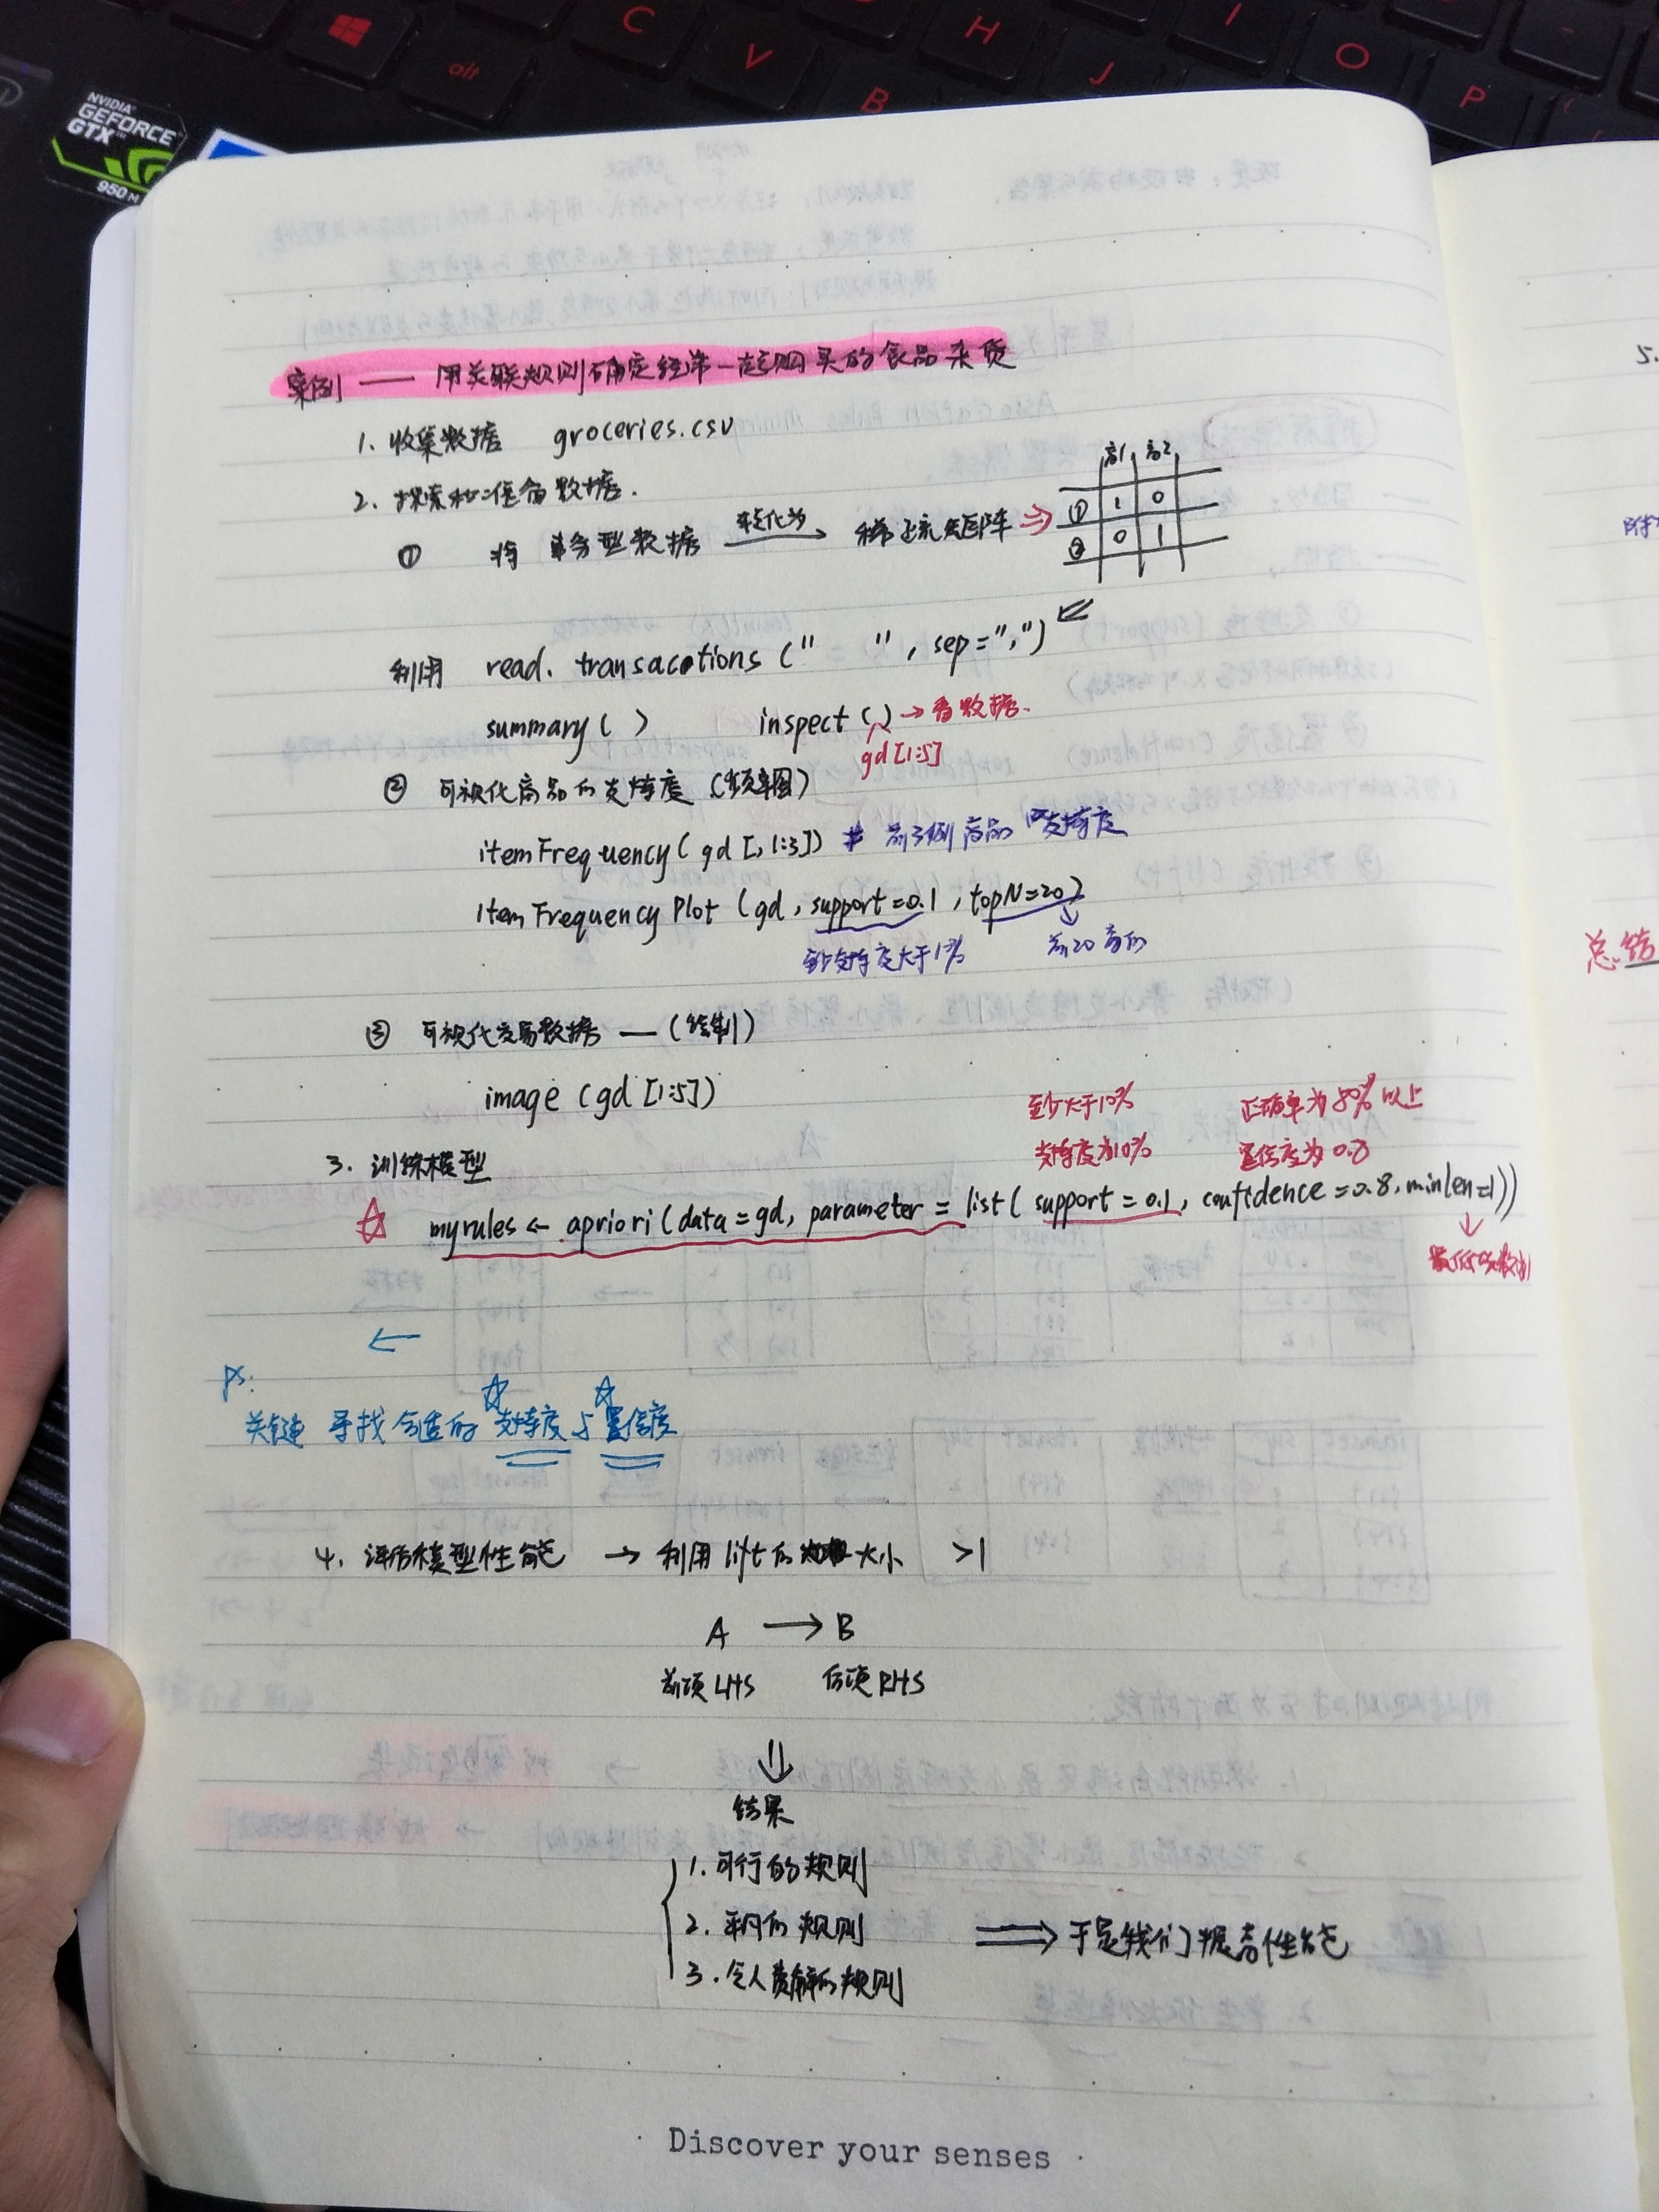 NVIDIA
GEFORCE
GTX
950M
alt
C
V
B
H
J
I
O
P
案例 —— 用关联规则确定经常一起购买的食品杂货
1. 收集数据 groceries.csv
2. 探索和准备数据.
① 将 事务型数据 转化为 稀疏矩阵 ⇒
商1 商2
① 1 0
② 0 1
利用 read. transacations (" ", sep=",")
summary ( ) inspect ( ) → 看数据.
gd [1:5]
② 可视化商品的支持度 (频率图)
itemFrequency ( gd [, 1:3]) # 前3例商品 的支持度
Item Frequency Plot (gd, support=0.1, topN=20)
支持度大于1% 前20高的
③ 可视化交易数据 — (绘制)
image (gd [1:5])
至少大于10% 正确率为80%以上
3. 训练模型 支持度为10% 置信度为 0.8
☆ myrules ← apriori (data = gd, parameter = list ( support = 0.1, confidence = 0.8, minlen=1))
最低项数
←
ps:
关键 寻找合适的 支持度与置信度
4. 评估模型性能 → 利用 lift 的 大小 >1
A → B
前项 LHS 后项 RHS
⇓
结果
1. 可行的规则
2. 平凡的规则 ⇒ 于是我们提高性能
3. 令人费解的规则
Discover your senses
5.
总结